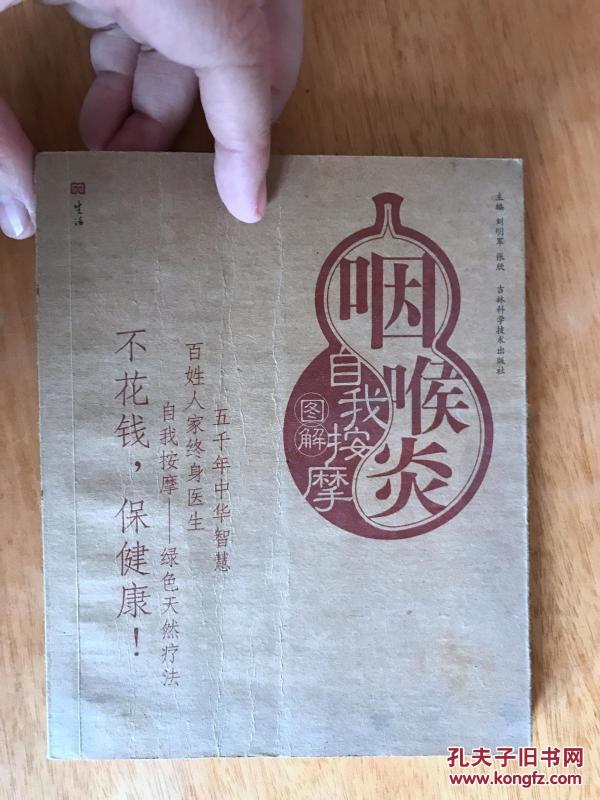 主编 刘明军 张欣 吉林科学技术出版社
咽喉炎
自我按摩
图解
五千年中华智慧
百姓人家终身医生
自我按摩——绿色天然疗法
不花钱，保健康！
生活
孔夫子旧书网
www.kongfz.com